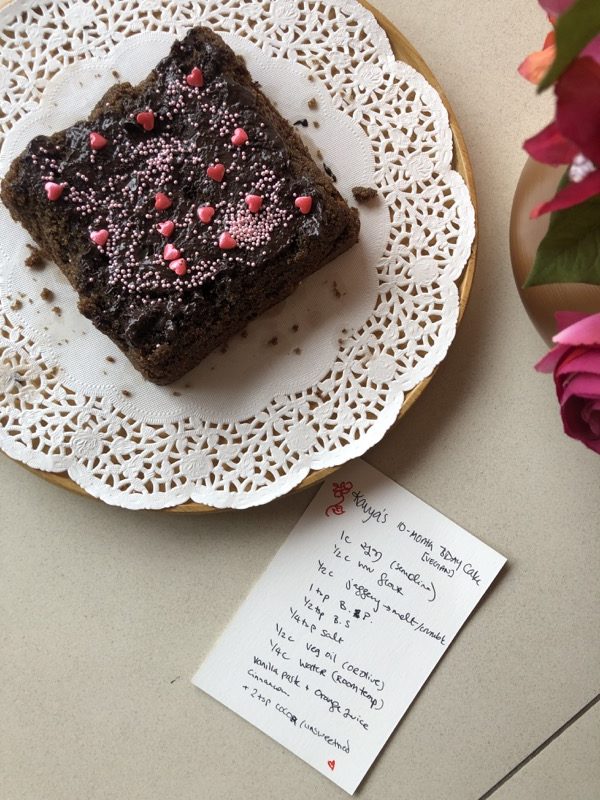 Kavya's 10-month BDAY Cake
[VEGAN]
1c (semolina)
1/2c flour
1/2c jaggery → melt/crumble
1 tsp B.P.
1/2 tsp B.S
1/4 tsp salt
1/2c veg oil (OR Olive)
1/4c water (ROOM temp)
vanilla paste + orange juice
cinnamon
+ 2 tsp cocoa (unsweetened